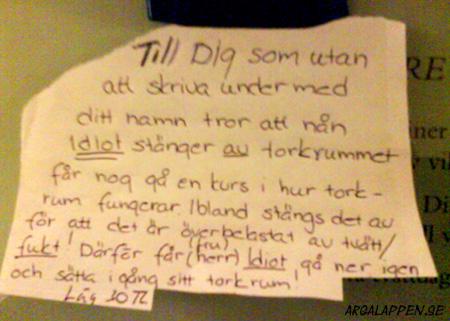 Till Dig som utan
att skriva under med
ditt namn tror att nån
Idiot stänger av torkrummet
får nog gå en kurs i hur tork-
rum fungerar. Ibland stängs det av
för att det är överbelastat av tvätt/
(fru)
fukt! Därför får (herr) Idiot gå ner igen
och sätta i gång sitt torkrum!
RE
Di
ARGALAPPEN.SE